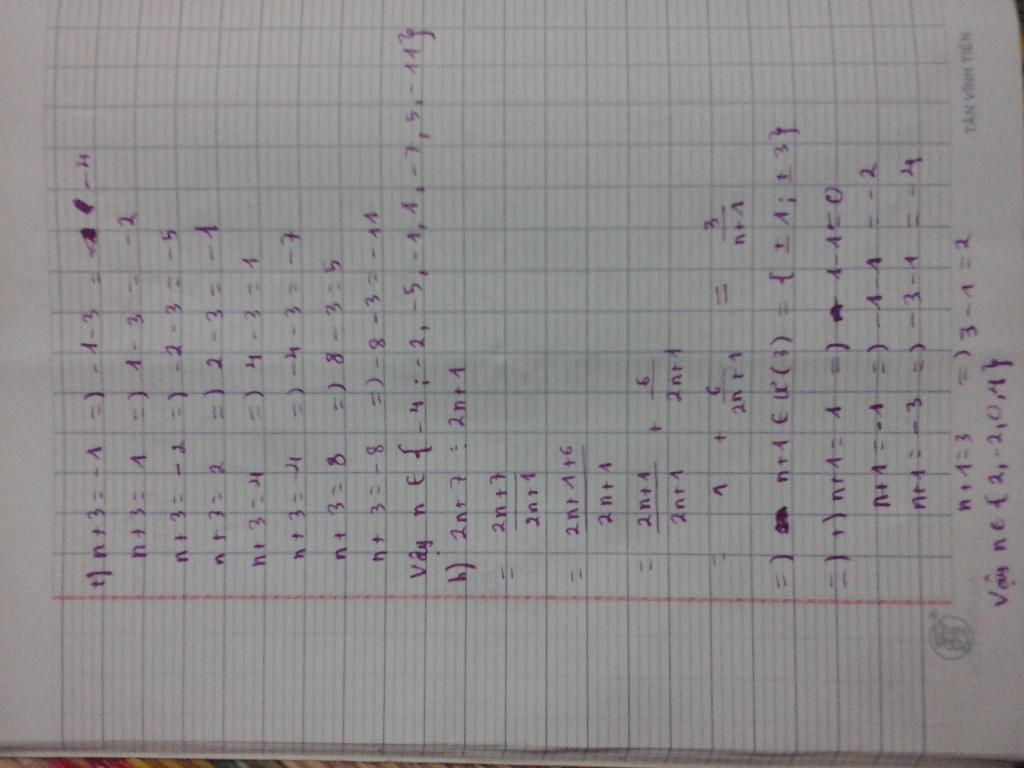 +) n+3 = -1 => -1-3 = -4
n+3 = 1 => 1-3 = -2
n+3 = -2 => -2-3 = -5
n+3 = 2 => 2-3 = -1
n+3 = 4 => 4-3 = 1
n+3 = -4 => -4-3 = -7
n+3 = 8 => 8-3 = 5
n+3 = -8 => -8-3 = -11
Vậy n ∈ {-4; -2, -5, -1, 1, -7, 5, -11}
h) 2n+7 : 2n+1
= 2n+7 / 2n+1
= 2n+1+6 / 2n+1
= 2n+1 / 2n+1 + 6 / 2n+1
= 1 + 6 / 2n+1 = 3 / n+1
=) n+1 ∈ Ư(3) = {±1; ±3}
=) +) n+1 = 1 =) 1-1 = 0
n+1 = -1 =) -1-1 = -2
n+1 = -3 =) -3-1 = -4
n+1 = 3 =) 3-1 = 2
Vậy n ∈ {2, -2, 0, 4}
TÂN VĨNH TIẾN